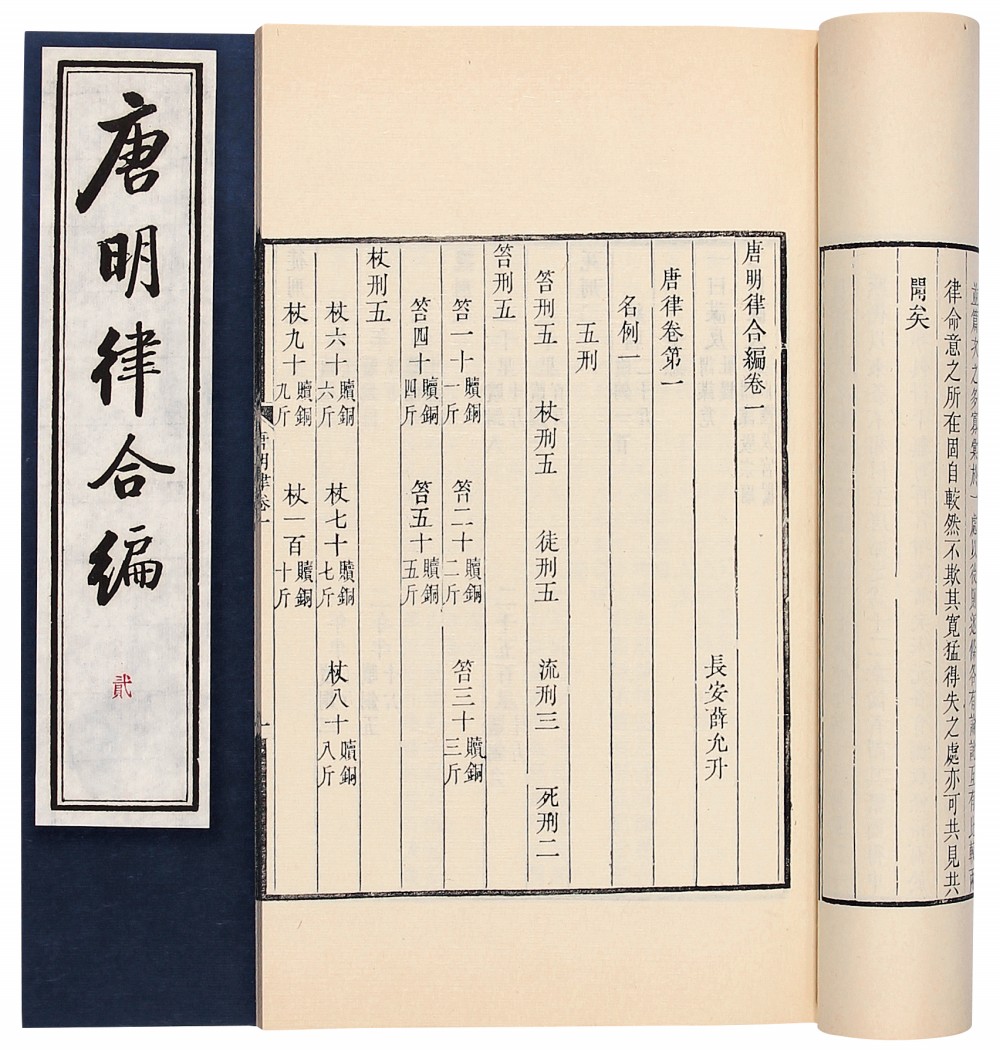 唐明律合編
貳
律命意之所在固自較然不欺其寬猛得失之處亦可共見共
聞矣
唐明律合編卷一
長安薛允升
唐律卷第一
名例一
五刑
笞刑五 杖刑五 徒刑五 流刑三 死刑二
笞刑五
笞一十贖銅一斤 笞二十贖銅二斤 笞三十贖銅三斤
笞四十贖銅四斤 笞五十贖銅五斤
杖刑五
杖六十贖銅六斤 杖七十贖銅七斤 杖八十贖銅八斤
杖九十贖銅九斤 杖一百贖銅十斤
唐明律卷一
一